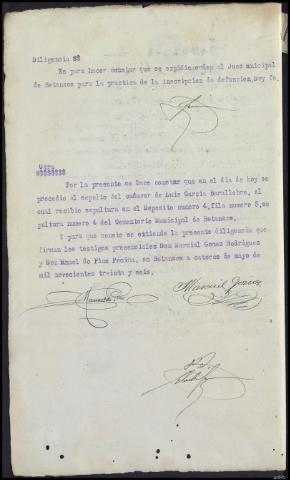 Diligencia
Es para hacer constar que se expidio orden al Juez municipal
de Betanzos para la practica de la inscripcion de defuncion. Doy fe.
Otra
Por la presente se hace constar que en el dia de hoy se
procedio al sepelio del cadaver de Luis Garcia Borallobre, el
cual recibio sepultura en el Deposito numero 4, fila numero 5, se
pultura numero 4 del Cementerio Municipal de Betanzos.
Y para que conste se extiende la presente diligencia que
firman los testigos presenciales Don Marcial Gomez Rodriguez
y Don Manuel de Pios Feciña, en Betanzos a catorce de mayo de
mil novecientos treinta y seis.